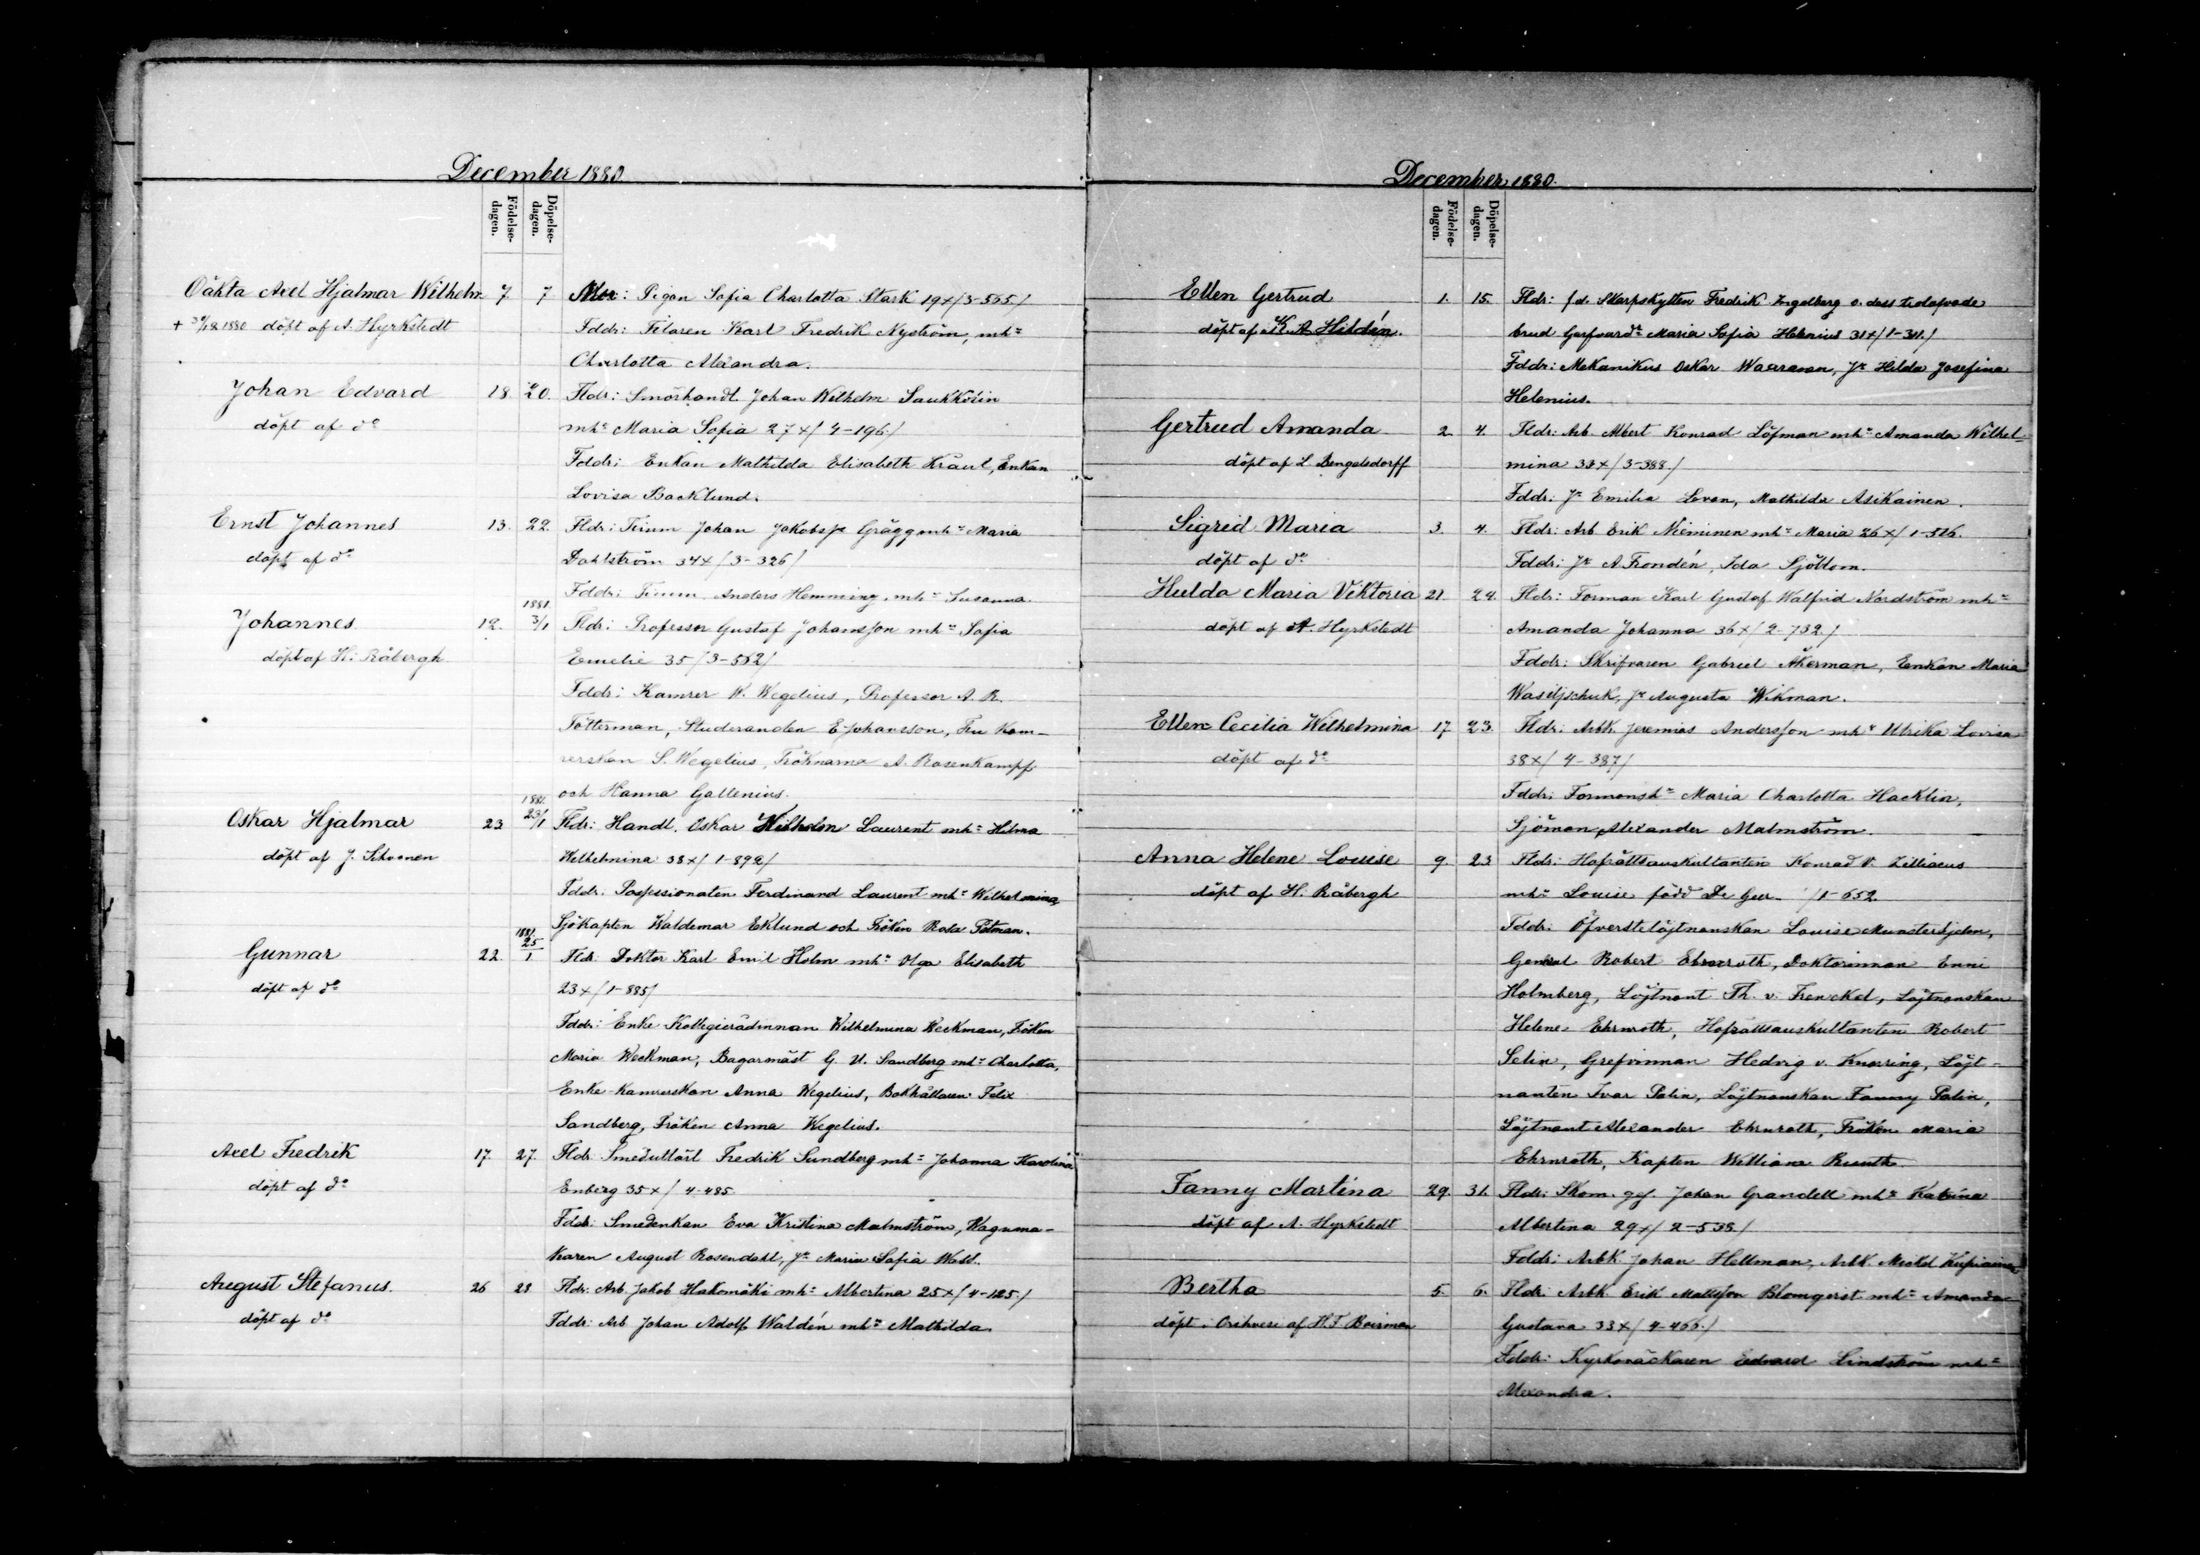 December 1880.
Födelse-
dagen.
Döpelse-
dagen.
Oäkta Axel Hjalmar Wilhelm 7 7 Mor: Pigan Sofia Charlotta Stark 19x/3-565/
1880 döpt af A. Hyrkstedt Fddr: Filaren Karl Fredrik Nyström, mhu
Charlotta Alexandra.
Johan Edvard 18. 20. Fldr: Smörhandl. Johan Wilhelm
döpt af do mhu Maria Sofia 27x/4-196/
Fddr: Enkan Mathilda Elisabeth Enkan
Lovisa Backlund.
Ernst Johannes 13. 22. Fldr: Timm Johan Jakobsson Grägg mhu Maria
döpt af do Dahlström 34x/3-326/
Fddr: Timm. Anders Hemming, mhu Susanna.
1881.
Johannes 12. 3/1 Fldr: Professor Gustaf Johansson mhu Sofia
döpt af H. Råbergh Emelie 35/3-562/
Fddr: Kamrer W. Wegelius, Professor A. R.
Totterman, Studeranden E Johansson, Fru Kam-
rerskan S. Wegelius, Fröknarna A. Rosenkampf
och Hanna Gallenius.
1881.
Oskar Hjalmar 23 23/1 Fldr: Handl. Oskar Wilhelm Laurent mhu Hilma
döpt af J. Sihvonen Wilhelmina 38x/1-892/
Fddr: Possessionaten Ferdinand Laurent mhu Wilhelmina,
Sjökapten Waldemar Eklund och Fröken Rosa
1881
Gunnar 22 25/1 Fldr: Doktor Karl Emil Holm mhu Olga Elisabeth
döpt af do 23x/1-885/
Fddr: Enke Kollegierådinnan Wilhelmina Weckman, Fröken
Maria Weckman, Bagarmäst G. U. Sandberg mhu Charlotta,
Enke-Kamrerskan Anna Wegelius, Bokhållaren Felix
Sandberg, Fröken Anna Wegelius.
Axel Fredrik 17. 27. Fldr: Fredrik Sundberg mhu Johanna Karolina
döpt af do Enberg 35x/4-485
Fddr: Smedenkan Eva Kristina Malmström, Vagnma-
karen August Rosendahl, Jn Maria Sofia
August Stefanus. 26 28 Fldr: Arb. Jakob Hakomäki mhu Albertina 25x/4-125/
döpt af do Fddr: Arb Johan Adolf Waldén mhu Mathilda.
December 1880.
Födelse-
dagen.
Döpelse-
dagen.
Ellen Gertrud 1. 15. Fldr: f.d. Skarpskytten Fredrik Engelberg o. dess trolofvade
döpt af K. A. Hildén. brud Maria Sofia Helenius 31x/1-311/
Fddr: Mekanikus Oskar Jn Hilda Josefina
Helenius.
Gertrud Amanda 2 4. Fldr: Arb. Albert Konrad Löfman mhu Amanda Wilhel-
döpt af L Dengelsdorff mina 33x/3-388/
Fddr: Jn Emilia Mathilda Asikainen.
Sigrid Maria 3. 4. Fldr: Arb Erik Nieminen mhu Maria 26x/1-516.
döpt af do Fddr: Jn A Frondén, Ida Sjöblom.
Hulda Maria Viktoria 21. 24. Fldr: Forman Karl Gustaf Walfrid Nordström mhu
döpt af A. Hyrkstedt Amanda Johanna 36x/2-732/
Fddr: Skrifvaren Gabriel Åkerman, Enkan Maria
Wasiljschuk, Jn Augusta Wikman.
Ellen Cecilia Wilhelmina 17 23 Fldr: Arbk. Jeremias Andersson mhu Ulrika Lovisa
döpt af do 38x/4-387/
Fddr: Formansh Maria Charlotta Hacklin,
Sjöman Alexander Malmström.
Anna Helene Louise 9. 23 Fldr: Hofrättsauskultanten Konrad V. Zilliacus
döpt af H. Råbergh mhu Louise född De Geer /1-652
Fddr: Öfverstelöjtnanskan Louise Munsterhjelm,
General Robert Ehrnroth, Doktorinnan Enni
Holmberg, Löjtnant Th. v. Frenckel, Löjtnanskan
Helene Ehrnroth, Hofrättsauskultanten Robert
Selin, Grefvinnan Hedvig v. Knorring, Löjt-
nanten Ivar Palin, Löjtnanskan Fanny Palin,
Löjtnant Alexander Ehrnroth, Fröken Maria
Ehrnroth, Kapten William Ruuth.
Fanny Martina 29. 31. Fldr: Skom. ges. Johan Grandell mhu Katrina
döpt af A. Hyrkstedt Albertina 29x/2-538/
Fddr: Arbk Johan Hellman, Arbk.
Bertha 5. 6. Fldr: Arbk Erik Mattsson Blomqvist mhu Amanda
döpt i Orihvesi af Gustava 33x/4-466/
Fddr: Kyrkoväckaren Edvard Lindström mhu
Alexandra.